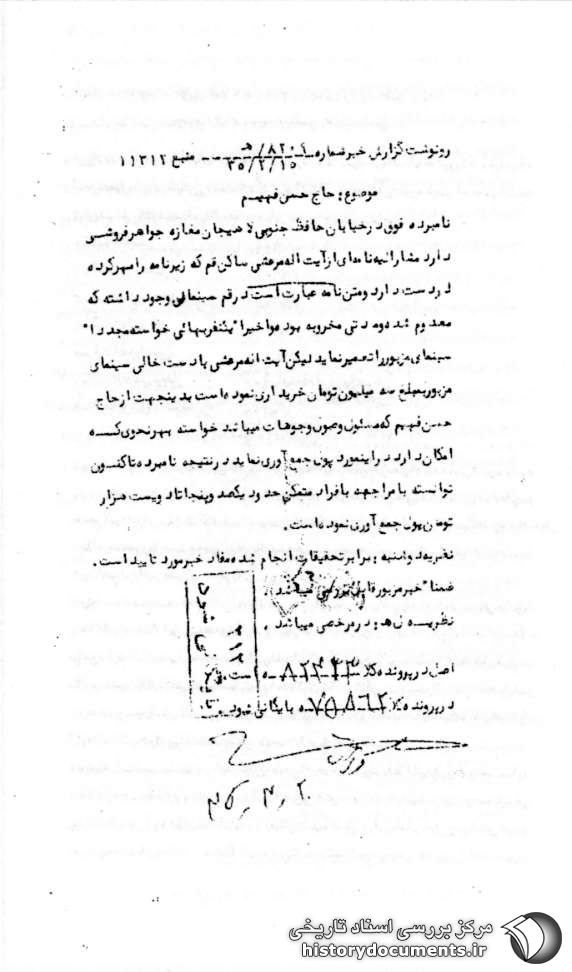 رونوشت گزارش خبر شماره ۸۲۰۱/ه‍ ۳۵/۲/۱۵ -- منبع ۱۱۳۱۲
موضوع : حاج حسن فهیم
نامبرده فوق در خیابان حافظ جنوبی لاهیجان مغازه جواهر فروشی
دارد مشارالیه نامه‌ای از آیت اله مرعشی ساکن قم که زیر نامه را مهر کرده
در دست دارد و متن نامه عبارت است در قم سینمائی وجود داشته که
معدوم شده و مدتی مخروبه بود و اخیرا" یکنفر بهائی خواسته مجددا"
سینمای مزبور را تعمیر نماید لیکن آیت اله مرعشی با دست خالی سینمای
مزبور بمبلغ سه میلیون تومان خریداری نموده است بدینجهت از حاج
حسن فهیم که مسئول وصول وجوهات میباشد خواسته بهر نحوی که
امکان دارد در اینمورد پول جمع آوری نماید در نتیجه نامبرده تاکنون
توانسته با مراجعه با افراد متمکن حدود یکصد و پنجاه تا دویست هزار
تومان پول جمع آوری نموده است.
نظریه منبع : برابر تحقیقات انجام شده مفاد خبر مورد تایید است.
ضمنا" خبر مزبور قابل بررسی میباشد.
نظریه ل‌ه‍ : در مرخصی میباشد.
اصل در پرونده کلاسه ۸۲۴۴۳ است.
در پرونده کلاسه ۷۵۸۶۲ بایگانی شود.
۳۵٫۳٫۲۰
مرکز بررسی اسناد تاریخی
historydocuments.ir